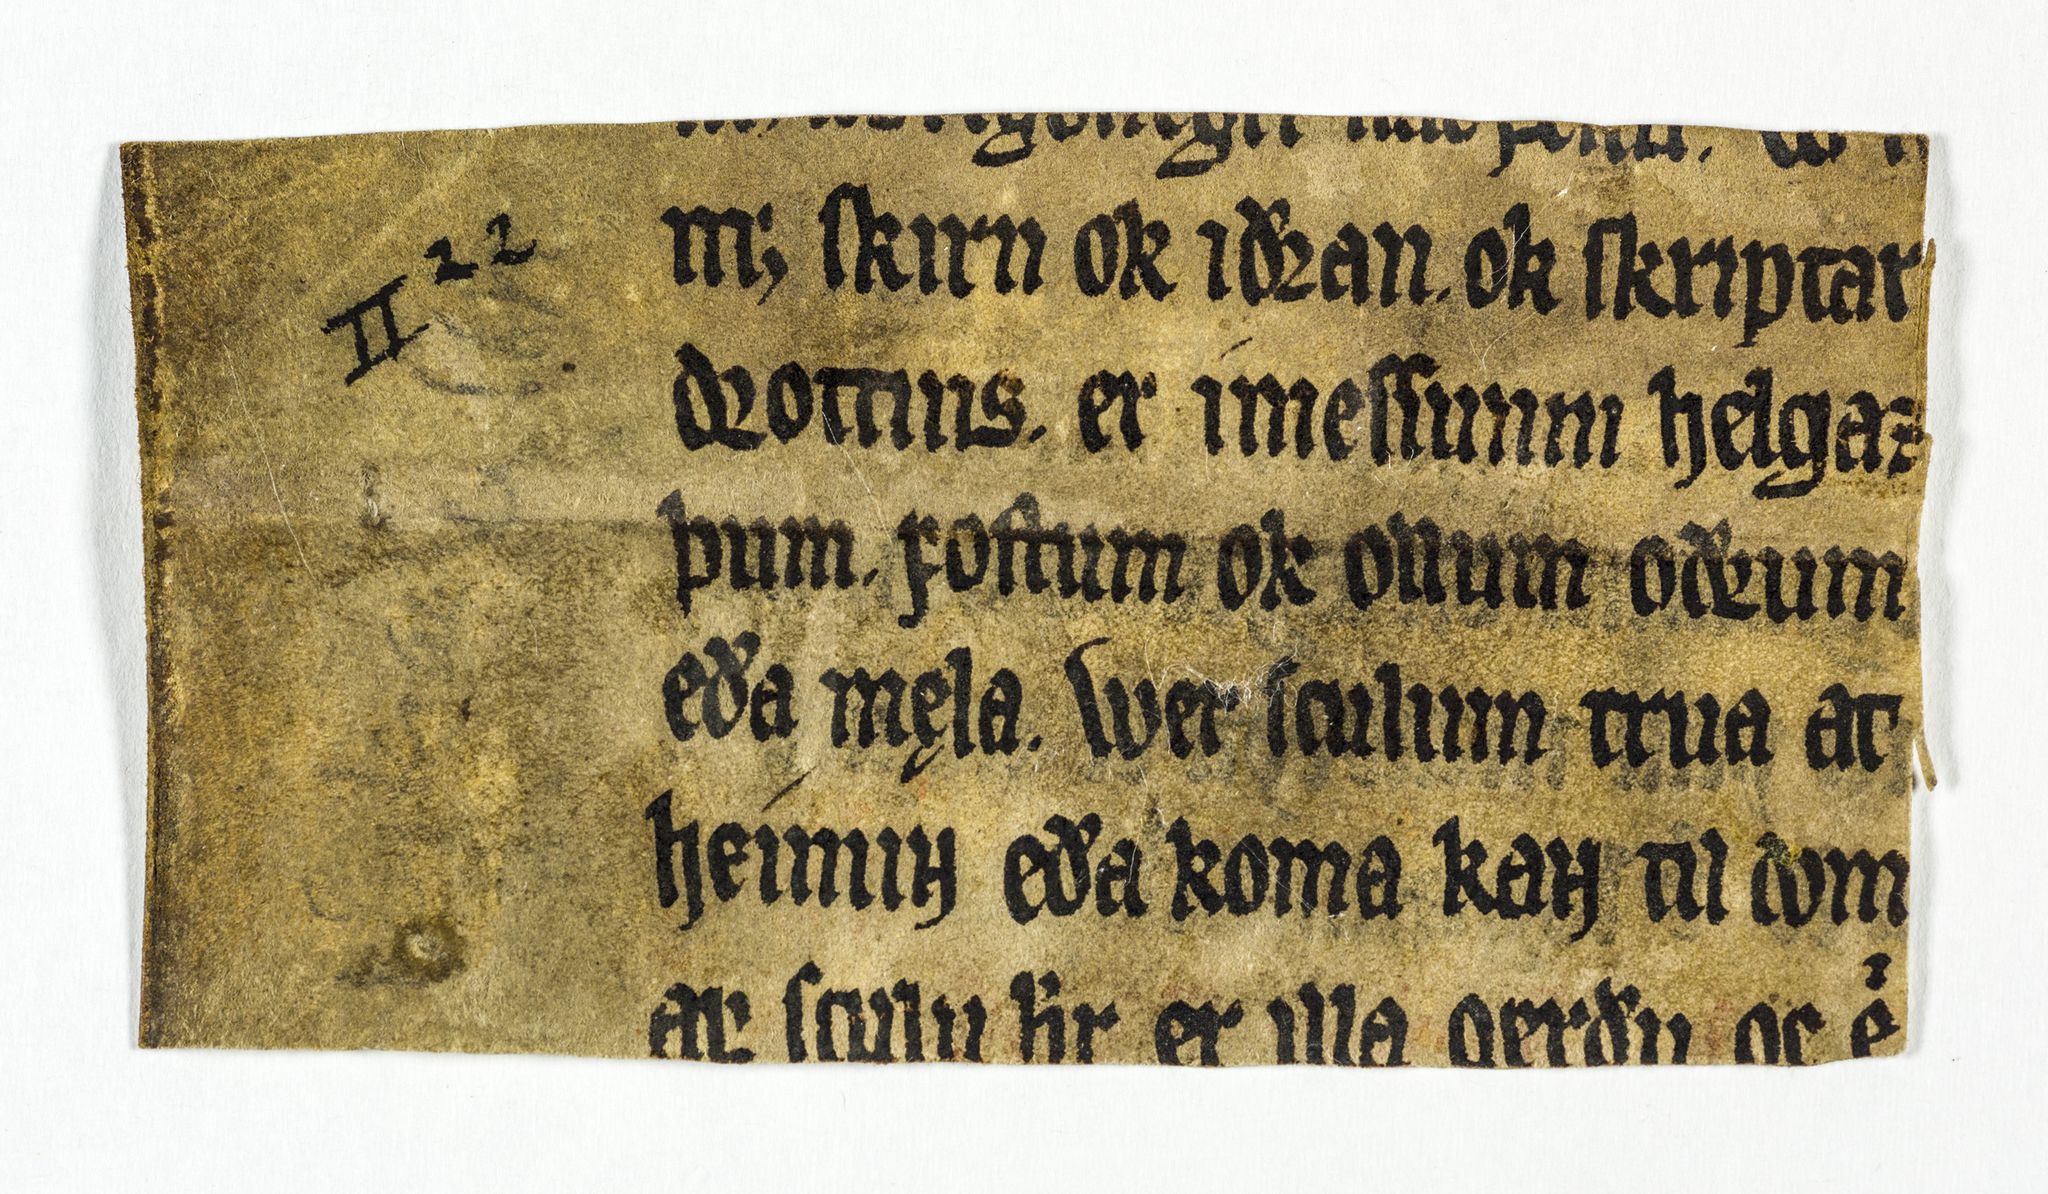 II 22
mꝫ skirn ok iðꝛan. ok skriptar
dꝛottins. er ímessunm helgaꝛ
þum. fostum ok ollum oðꝛum
eða męla. Wer sculum trua at
heímiɴ eða koma kaɴ til dom
ar sculu þeir er illa gerðu oc ei